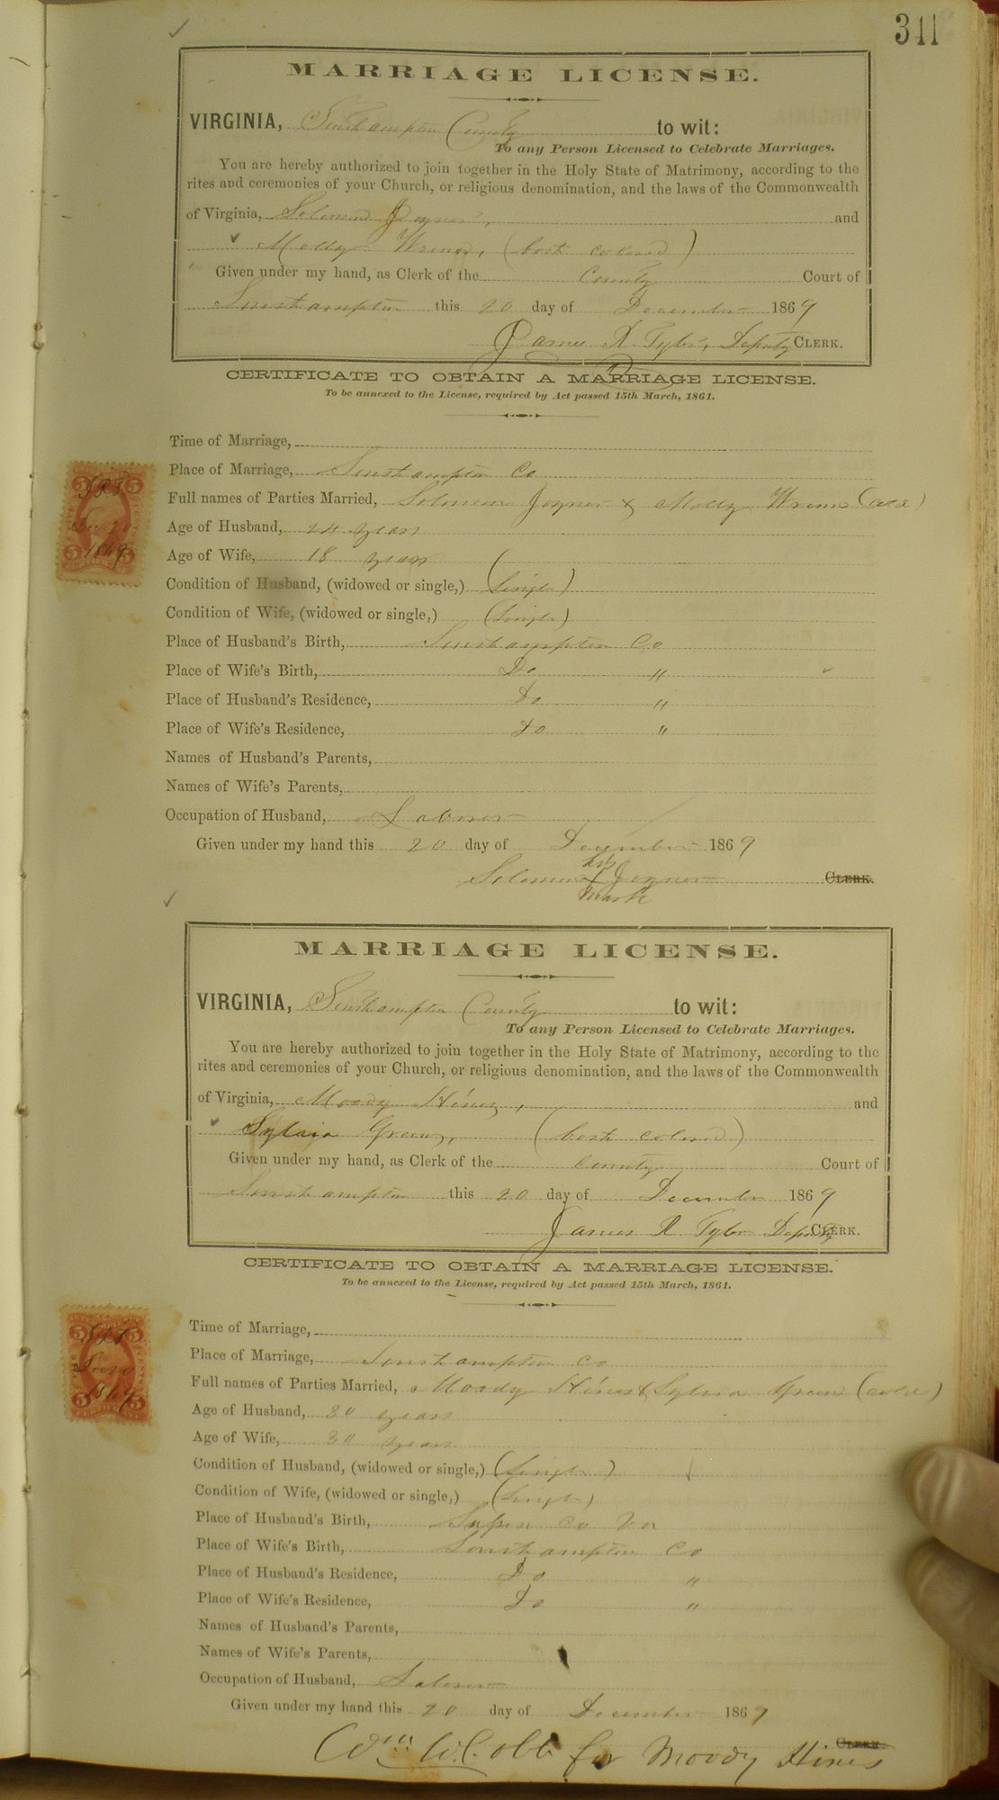 311
MARRIAGE LICENSE.
VIRGINIA, Southampton County to wit:
To any Person Licensed to Celebrate Marriages.
You are hereby authorized to join together in the Holy State of Matrimony, according to the
rites and ceremonies of your Church, or religious denomination, and the laws of the Commonwealth
of Virginia, Solomon Joyner, and
Molly (both colored)
Given under my hand, as Clerk of the County Court of
Southampton this 20 day of December 1869
James R Tyler, Deputy CLERK.
CERTIFICATE TO OBTAIN A MARRIAGE LICENSE.
To be annexed to the License, required by Act passed 15th March, 1861.
Time of Marriage,
Place of Marriage, Southampton Co
Full names of Parties Married, Solomon Joyner & Molly (cold)
Age of Husband, 24 years
Age of Wife, 18 years
Condition of Husband, (widowed or single,) (Single)
Condition of Wife, (widowed or single,) (Single)
Place of Husband's Birth, Southampton Co
Place of Wife's Birth, Do "
Place of Husband's Residence, Do "
Place of Wife's Residence, Do "
Names of Husband's Parents,
Names of Wife's Parents,
Occupation of Husband, Laborer
Given under my hand this 20 day of December 1869
his
Solomon X Joyner CLERK.
mark
MARRIAGE LICENSE.
VIRGINIA, Southampton County to wit:
To any Person Licensed to Celebrate Marriages.
You are hereby authorized to join together in the Holy State of Matrimony, according to the
rites and ceremonies of your Church, or religious denomination, and the laws of the Commonwealth
of Virginia, Moody Hines, and
Sylvia Green, (both colored)
Given under my hand, as Clerk of the County Court of
Southampton this 20 day of December 1869
James R Tyler Deputy CLERK.
CERTIFICATE TO OBTAIN A MARRIAGE LICENSE.
To be annexed to the License, required by Act passed 15th March, 1861.
Time of Marriage,
Place of Marriage, Southampton Co
Full names of Parties Married, Moody Hines & Sylvia Green (cold)
Age of Husband, 30 years
Age of Wife, 30 years
Condition of Husband, (widowed or single,) (Single)
Condition of Wife, (widowed or single,) (Single)
Place of Husband's Birth, Co Va
Place of Wife's Birth, Southampton Co
Place of Husband's Residence, Do "
Place of Wife's Residence, Do "
Names of Husband's Parents,
Names of Wife's Parents,
Occupation of Husband, Laborer
Given under my hand this 20 day of December 1869
CLERK.
Wm W. Cobb for Moody Hines